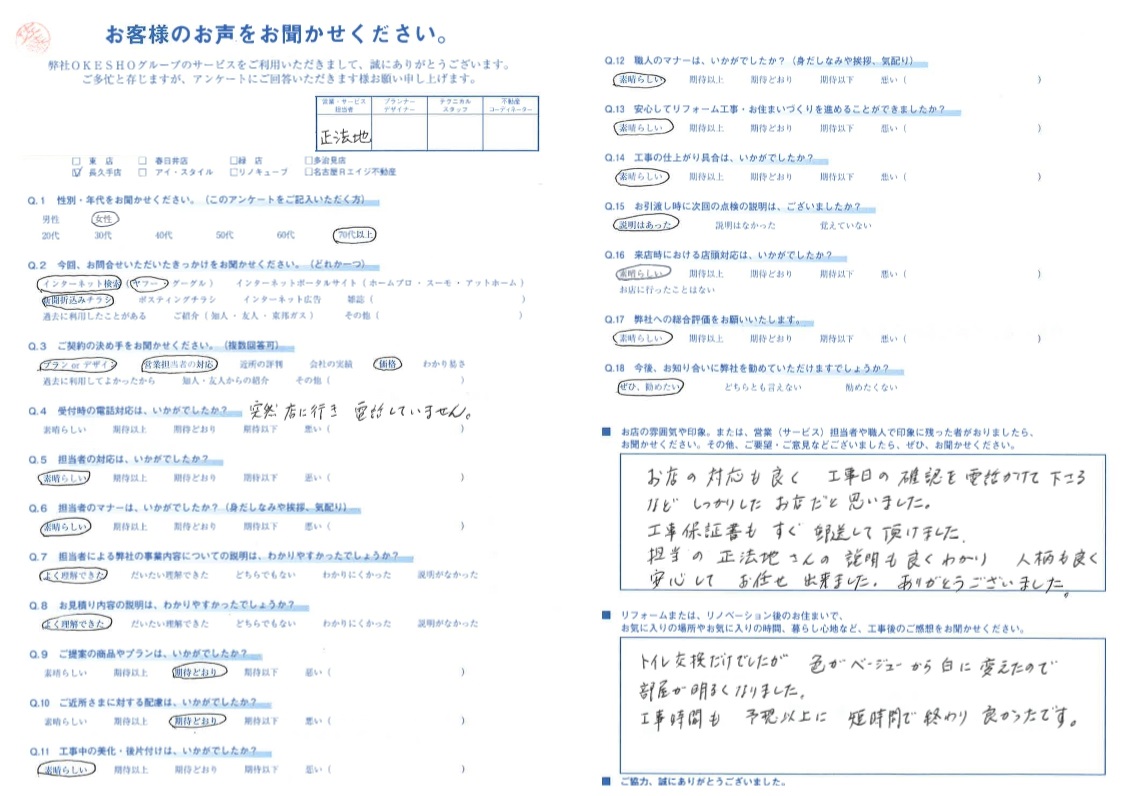 お客様のお声をお聞かせください。
弊社OKESHOグループのサービスをご利用いただきまして、誠にありがとうございます。
ご多忙と存じますが、アンケートにご回答いただきます様お願い申し上げます。
営業・サービス担当者 プランナーデザイナー テクニカルスタッフ 不動産コーディネーター
正法地
□ 東 店 □ 春日井店 □緑 店 □多治見店
☑ 長久手店 □ アイ・スタイル □リノキューブ □名古屋Rエイジ不動産
Q.1 性別・年代をお聞かせください。(このアンケートをご記入いただく方)
男性 女性
20代 30代 40代 50代 60代 70代以上
Q.2 今回、お問合せいただいたきっかけをお聞かせください。(どれか一つ)
インターネット検索(ヤフー・グーグル) インターネットポータルサイト(ホームプロ・スーモ・アットホーム)
新聞折込みチラシ ポスティングチラシ インターネット広告 雑誌( )
過去に利用したことがある ご紹介(知人・友人・東邦ガス) その他( )
Q.3 ご契約の決め手をお聞かせください。(複数回答可)
プラン or デザイン 営業担当者の対応 近所の評判 会社の実績 価格 わかり易さ
過去に利用してよかったから 知人・友人からの紹介 その他( )
Q.4 受付時の電話対応は、いかがでしたか? 突然店に行き 電話していません。
素晴らしい 期待以上 期待どおり 期待以下 悪い( )
Q.5 担当者の対応は、いかがでしたか?
素晴らしい 期待以上 期待どおり 期待以下 悪い( )
Q.6 担当者のマナーは、いかがでしたか?(身だしなみや挨拶、気配り)
素晴らしい 期待以上 期待どおり 期待以下 悪い( )
Q.7 担当者による弊社の事業内容についての説明は、わかりやすかったでしょうか?
よく理解できた だいたい理解できた どちらでもない わかりにくかった 説明がなかった
Q.8 お見積り内容の説明は、わかりやすかったでしょうか?
よく理解できた だいたい理解できた どちらでもない わかりにくかった 説明がなかった
Q.9 ご提案の商品やプランは、いかがでしたか?
素晴らしい 期待以上 期待どおり 期待以下 悪い( )
Q.10 ご近所さまに対する配慮は、いかがでしたか?
素晴らしい 期待以上 期待どおり 期待以下 悪い( )
Q.11 工事中の美化・後片付けは、いかがでしたか?
素晴らしい 期待以上 期待どおり 期待以下 悪い( )
Q.12 職人のマナーは、いかがでしたか?(身だしなみや挨拶、気配り)
素晴らしい 期待以上 期待どおり 期待以下 悪い( )
Q.13 安心してリフォーム工事・お住まいづくりを進めることができましたか?
素晴らしい 期待以上 期待どおり 期待以下 悪い( )
Q.14 工事の仕上がり具合は、いかがでしたか?
素晴らしい 期待以上 期待どおり 期待以下 悪い( )
Q.15 お引渡し時に次回の点検の説明は、ございましたか?
説明はあった 説明はなかった 覚えていない
Q.16 来店時における店頭対応は、いかがでしたか?
素晴らしい 期待以上 期待どおり 期待以下 悪い( )
お店に行ったことはない
Q.17 弊社への総合評価をお願いいたします。
素晴らしい 期待以上 期待どおり 期待以下 悪い( )
Q.18 今後、お知り合いに弊社を勧めていただけますでしょうか?
ぜひ、勧めたい どちらとも言えない 勧めたくない
■ お店の雰囲気や印象。または、営業(サービス)担当者や職人で印象に残った者がおりましたら、
お聞かせください。その他、ご要望・ご意見などございましたら、ぜひ、お聞かせください。
お店の対応も良く 工事日の確認を電話かけて下さる
など しっかりした お店だと思いました。
工事保証書も すぐ 郵送して頂けました。
担当の正法地さんの説明も良くわかり 人柄も良く
安心して お任せ 出来ました。ありがとうございました。
■ リフォームまたは、リノベーション後のお住まいで、
お気に入りの場所やお気に入りの時間、暮らし心地など、工事後のご感想をお聞かせください。
トイレ交換だけでしたが 色がベージューから白に変えたので
部屋が明るくなりました。
工事時間も 予想以上に 短時間で終わり 良かったです。
■ ご協力、誠にありがとうございました。